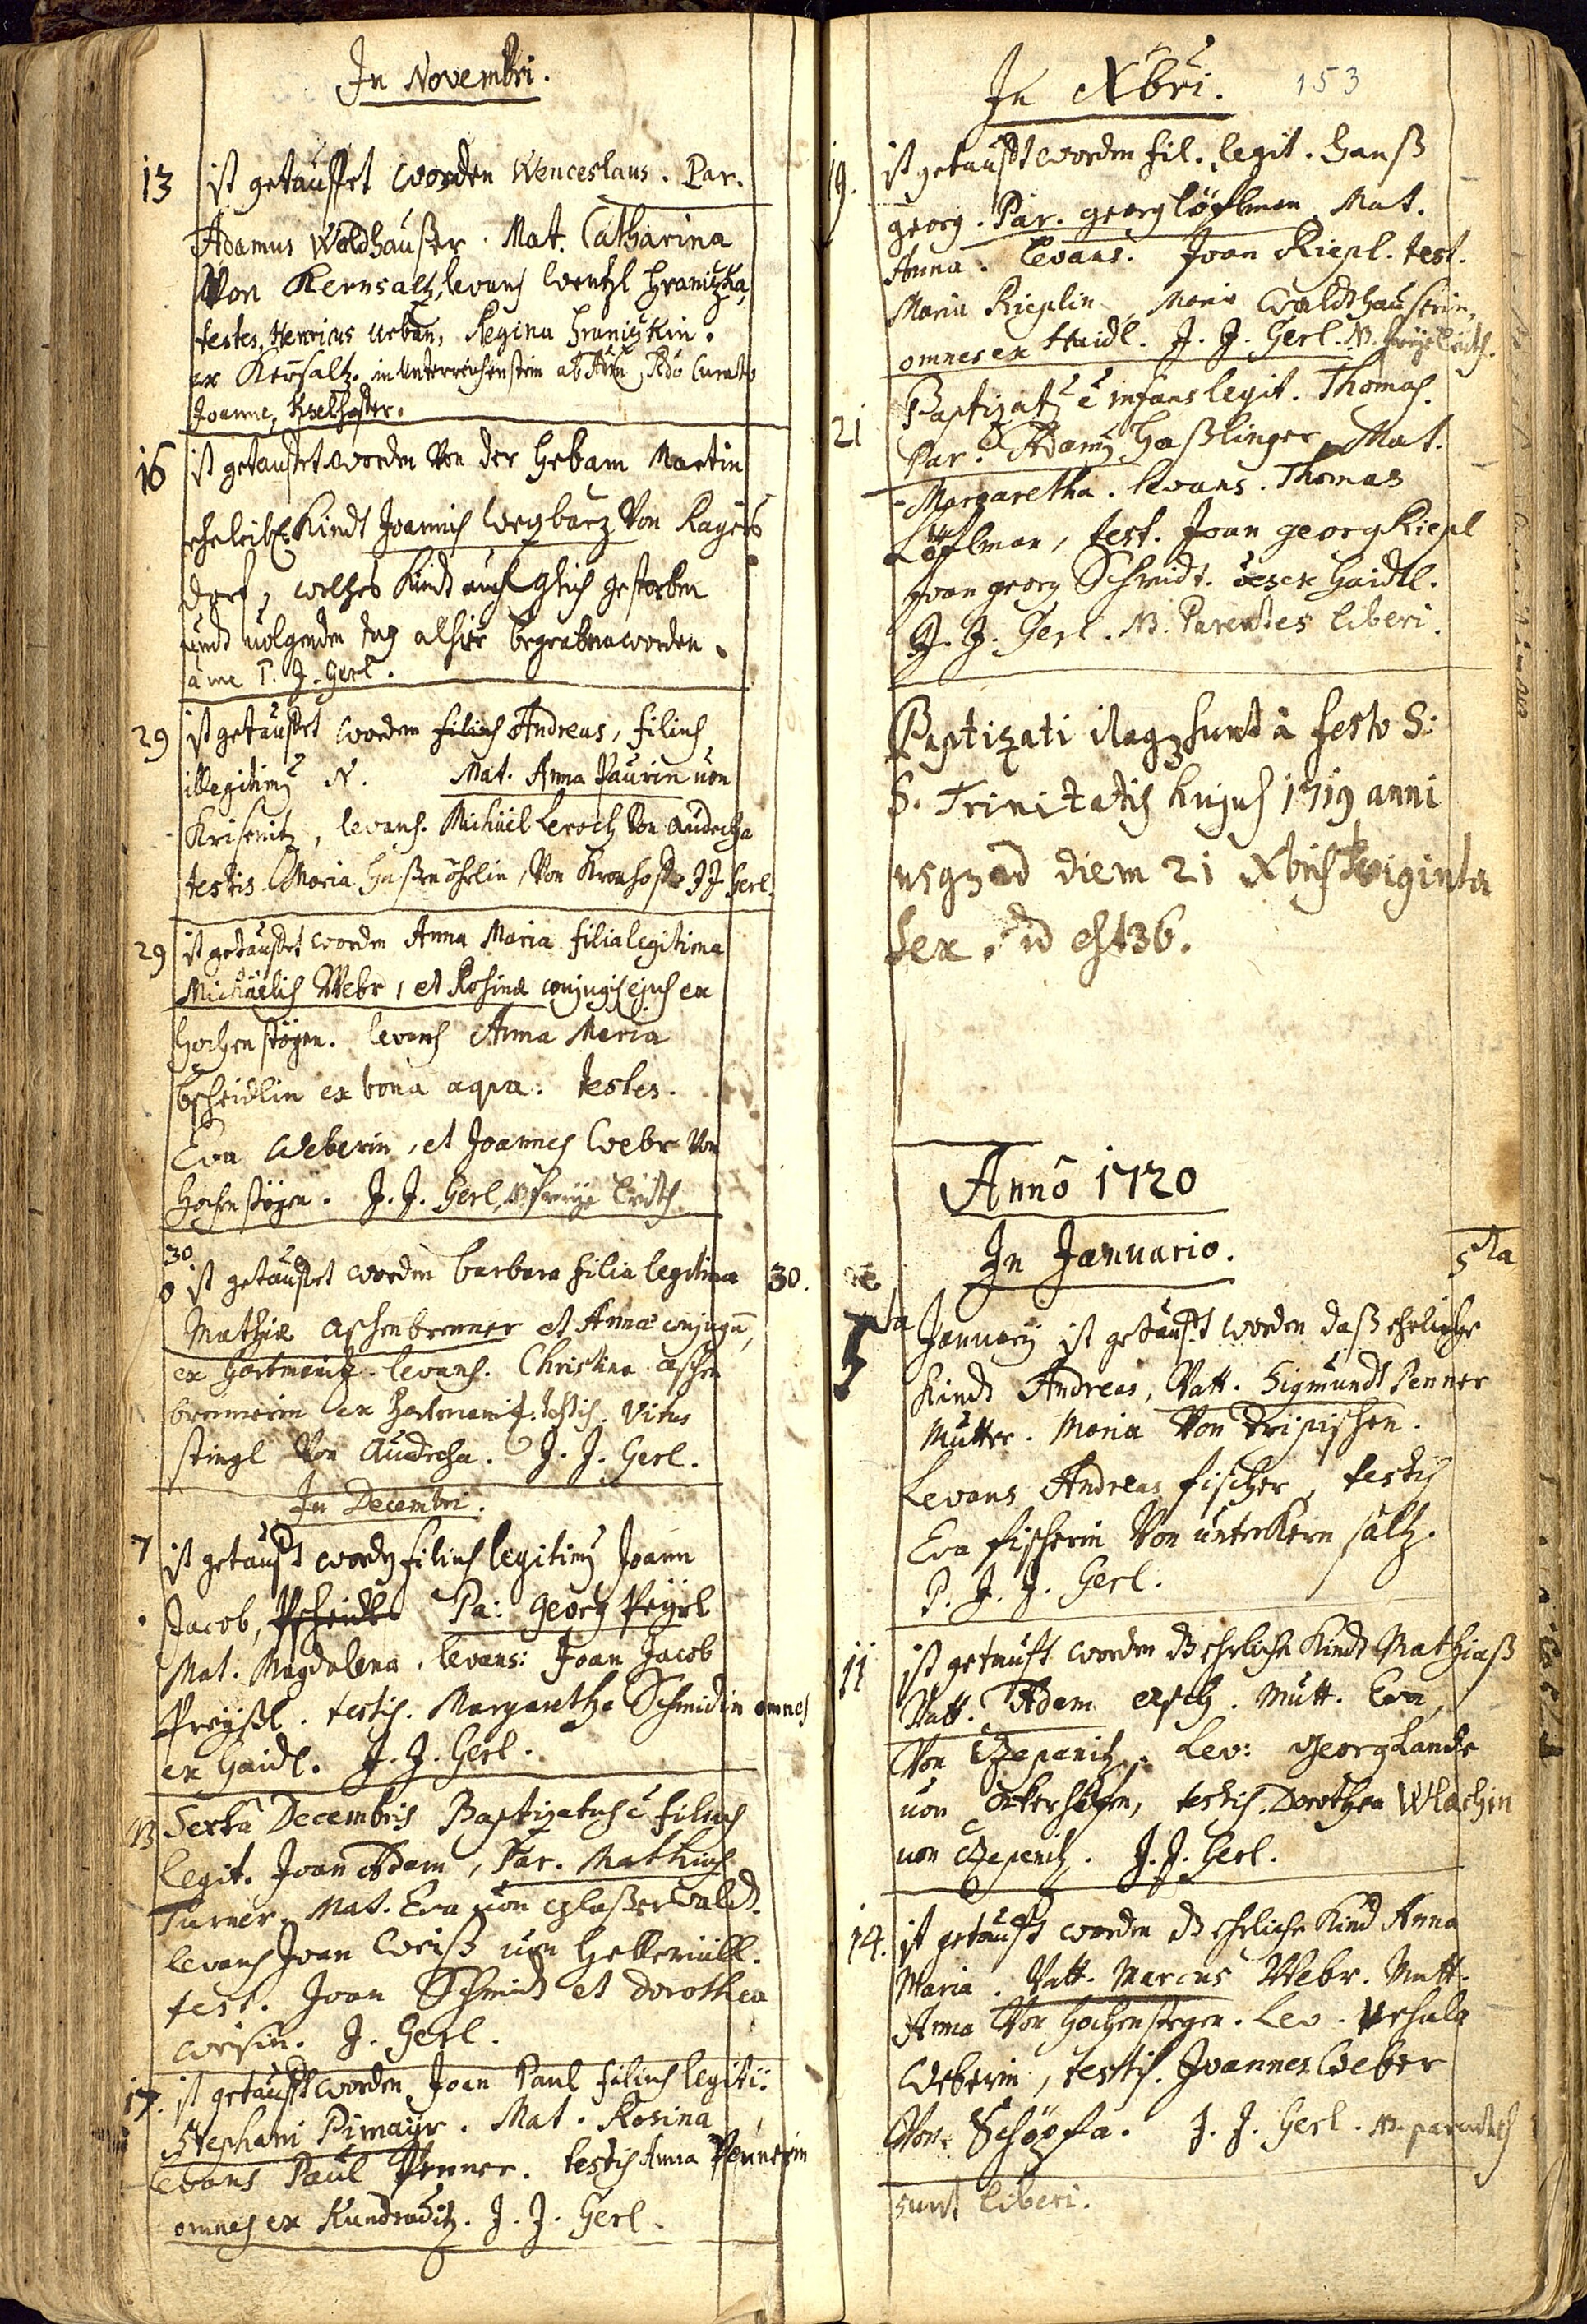 In Novembri.
13 ist getauffet worden Wenceslaus. Par.
Adamus Waldhaußer. Mat. Catharina
Von Kernsaltz, levans Wentzl Hranizka,
testes, Henricus Urban, Regina Hranizkin.
ex Kernsaltz. in Unterreichenstein ab Curato
Joanne,
16 ist getauffet worden Von der Hebam Martin
ehelich Kindt Joannis Von
dorf, welches Kindt auch gleich gestorben
undt volgenden tag alhier begraben worden.
a me P. J. Gerl.
29 ist getauffet worden filius Andreas, filius
illegitimus N. Mat. Anna Paurin von
Krisenitz, levans. Michael Von Audecha
testis Maria Von J J Gerl.
29 ist getauffet worden Anna Maria filia legitima
Michaelis Webr, et Rosinæ conjugis ejus ex
Hochenstögen. levans Anna Maria
Pscheidlin ex bona aqua: testes.
Eva Weberin, et Joannes Webr Von
Hochenstögen. J. J. Gerl, NB. freye leuth.
30
ist getauffet worden barbara filia legitima 30.
Mathiæ aschenbrenner et Annæ conjugum,
ex Hartmanitz. levans. Christina aschen
brennerin ex Hartmanitz: testis. Vitus
stingl Von Audecha. J. J. Gerl.
In Decembri.
7 ist getauft worden filius legitimus Joann
Jacob, Pa: georg Peyrl
Mat. Magdalena, levans: Joan Jacob
Preyßl. testis. Margaretha Schmidin omnes
ex Haidl. J. J. Gerl.
NB Sexta Decembris Baptizatus e filius
legit. Joan Adam, Par. Mathias
Turner, Mat. Eva von glaßerwald.
levans Joan Weiß von
test. Joan Schmid et Dorothea
Weisin. J. Gerl.
17. ist getaufft worden Joan Paul filius legiti:
Stephani Pimayr. Mat. Rosina
levans Paul Penner. testis Anna Pennerin
omnes ex Kundraditz. J. J. Gerl.
In Xbri. 153
19. ist getaufft worden fil. legit. Hanß
georg. Par. georg löflman Mat.
Anna. levans. Joan Riepl. test.
Maria Rieplin, Maria Waldthauserin,
omnes ex Haidl. J. J. Gerl. NB. freye leuth.
21 Baptizatus e infans legit. Thomas.
Par. Adamus Haßlinger, Mat.
Margaretha. levans. Thomas
Löflman, test. Joan georg Riepl
Joan georg Schmidt. oes ex Haidl.
J. J. Gerl. NB. Parentes liberi.
Baptizati itaq sunt â festo S:
S. Trinitatis hujus 1719 anni
usq ad diem 21 Xbris triginta
sex, id est 36.
Annô 1720
In Januario. 5ta
5ta January ist getauft worden daß eheliche
Kindt Andreas, Vatt. Sigmundt Penner
Mutter. Maria Von
Levans Andreas fischer, testis
Eva fischerin Von unterkern saltz.
P. J. J. Gerl.
11 ist getauft worden dß ehrliche Kindt Mathiaß
Vatt. Adam Mutt. Eva,
Von Czepanitz, Lev: georg Lands
von testis. Dorothea Wlachin
von Czepenitz. J. J. Gerl.
14. ist getauft worden dß ehrliche Kind Anna
Maria. Vatt. Marcus Webr. Mutt.
Anna Von Hochenstegen. Lev. Ursula
Weberin, testis. Joannes Weber
Von Schöpfa. J. J. Gerl. NB. parentes
sunt liberi.